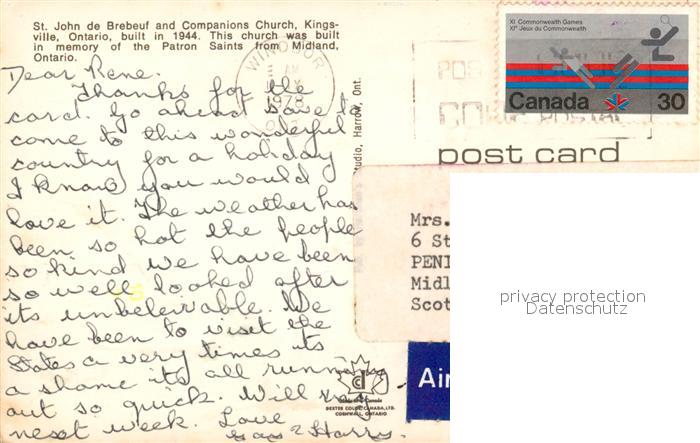 St. John de Brebeuf and Companions Church, Kings-
ville, Ontario, built in 1944. This church was built
in memory of the Patron Saints from Midland,
Ontario.
Dear Rene.
Thanks for the
card. Go ahead save &
come to this wonderful
country for a holiday
I know you would
love it. The weather has
been so hot the people
so kind we have been
so well looked after
its unbelievable. We
have been to visit the
States a very times its
a shame its all running
out so quick. Will
next week. Love
Harry.
WINDSOR
AM
1978
XI Commonwealth Games
XIes Jeux du Commonwealth
Canada 30
POS
CODE POSTAL
post card
Studio, Harrow, Ont.
Mrs.
6 St
PENI
Midl
Scot
privacy protection
Datenschutz
Air
DEXTER COLOR CANADA, LTD.
CORNWALL, ONTARIO